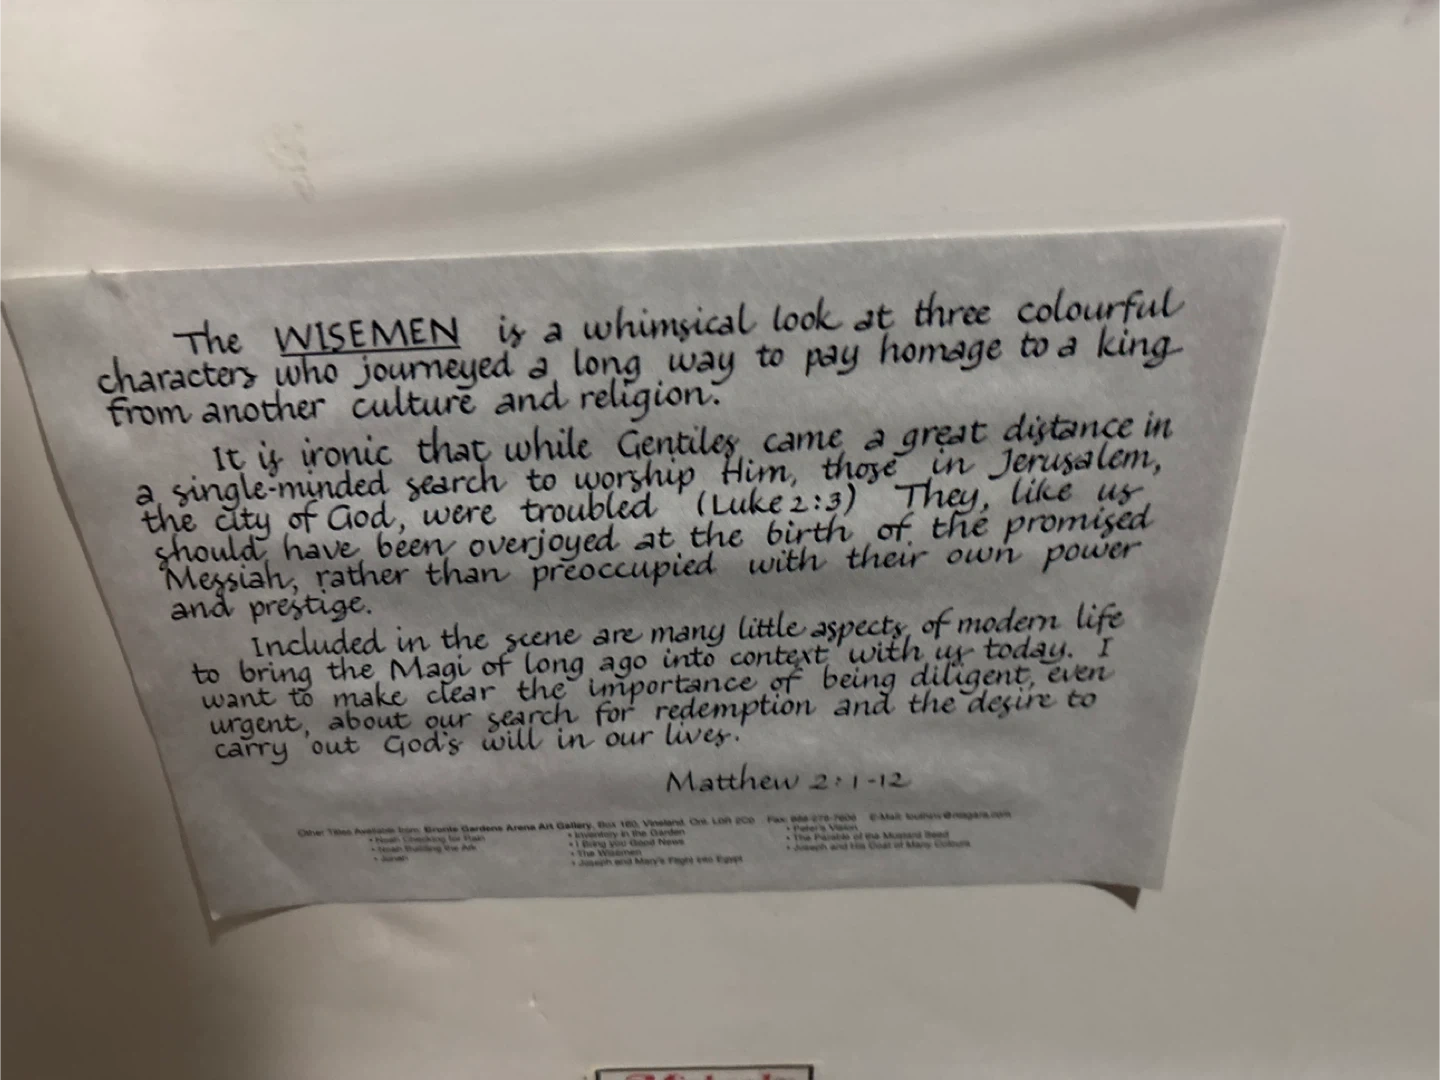 The WISEMEN is a whimsical look at three colourful
characters who journeyed a long way to pay homage to a king
from another culture and religion.
It is ironic that while Gentiles came a great distance in
a single-minded search to worship Him, those in Jerusalem,
the city of God, were troubled (Luke 2:3) They, like us
should have been overjoyed at the birth of the promised
Messiah, rather than preoccupied with their own power
and prestige.
Included in the scene are many little aspects of modern life
to bring the Magi of long ago into context with us today. I
want to make clear the importance of being diligent, even
urgent, about our search for redemption and the desire to
carry out God's will in our lives.
Matthew 2:1-12
Other Titles Available from: Gardens Arena Art Gallery, Box 160, Vineland, Ont. L0R 2C0 Fax: E-Mail:
• Noah Checking for Rain
• Noah Building the Ark
• Jonah
• Inventory in the Garden
• I Bring you Good News
• The Wisemen
• Joseph and Mary's Flight into Egypt
• Peter's Vision
• The Parable of the Mustard Seed
• Joseph and His Coat of Many Colours